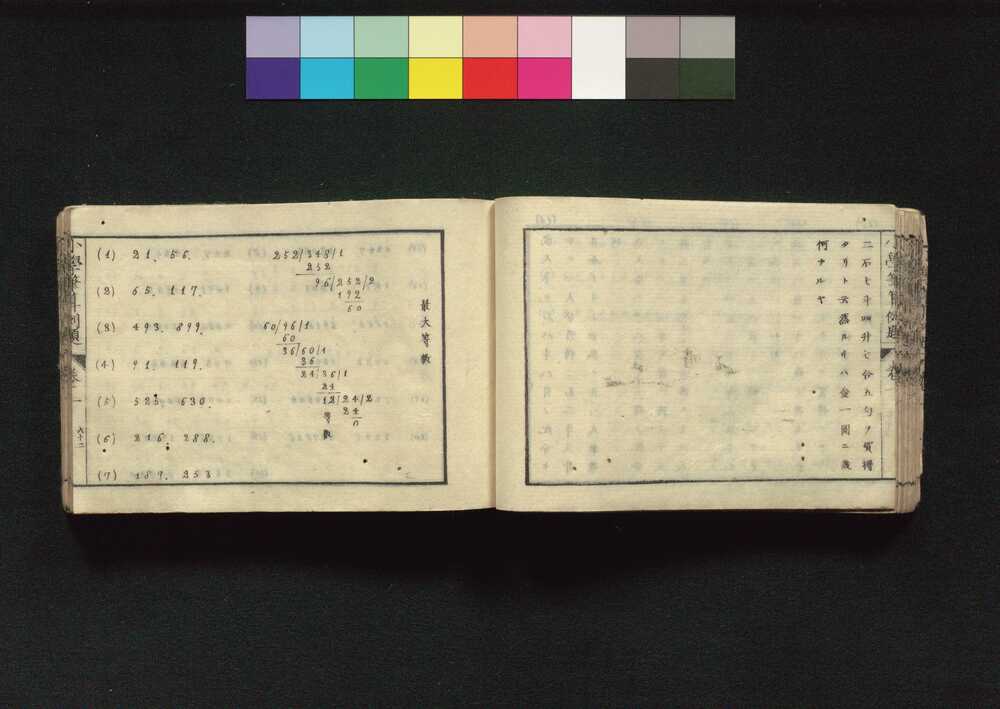 二石七斗四升七合五勺ヲ買得
タリト云然ル片ハ金一圓ニ幾
何ナルヤ
最大等數
252/348/1
252
96/252/2
192
60
60/96/1
60
36/60/1
36
24/36/1
24
12/24/2
24
0
等數
(1) 21. 56.
(2) 65. 117.
(3) 493. 899.
(4) 91. 119.
(5) 525. 630.
(6) 216. 288.
(7) 189. 253
小學筆算例題
卷一
六十二